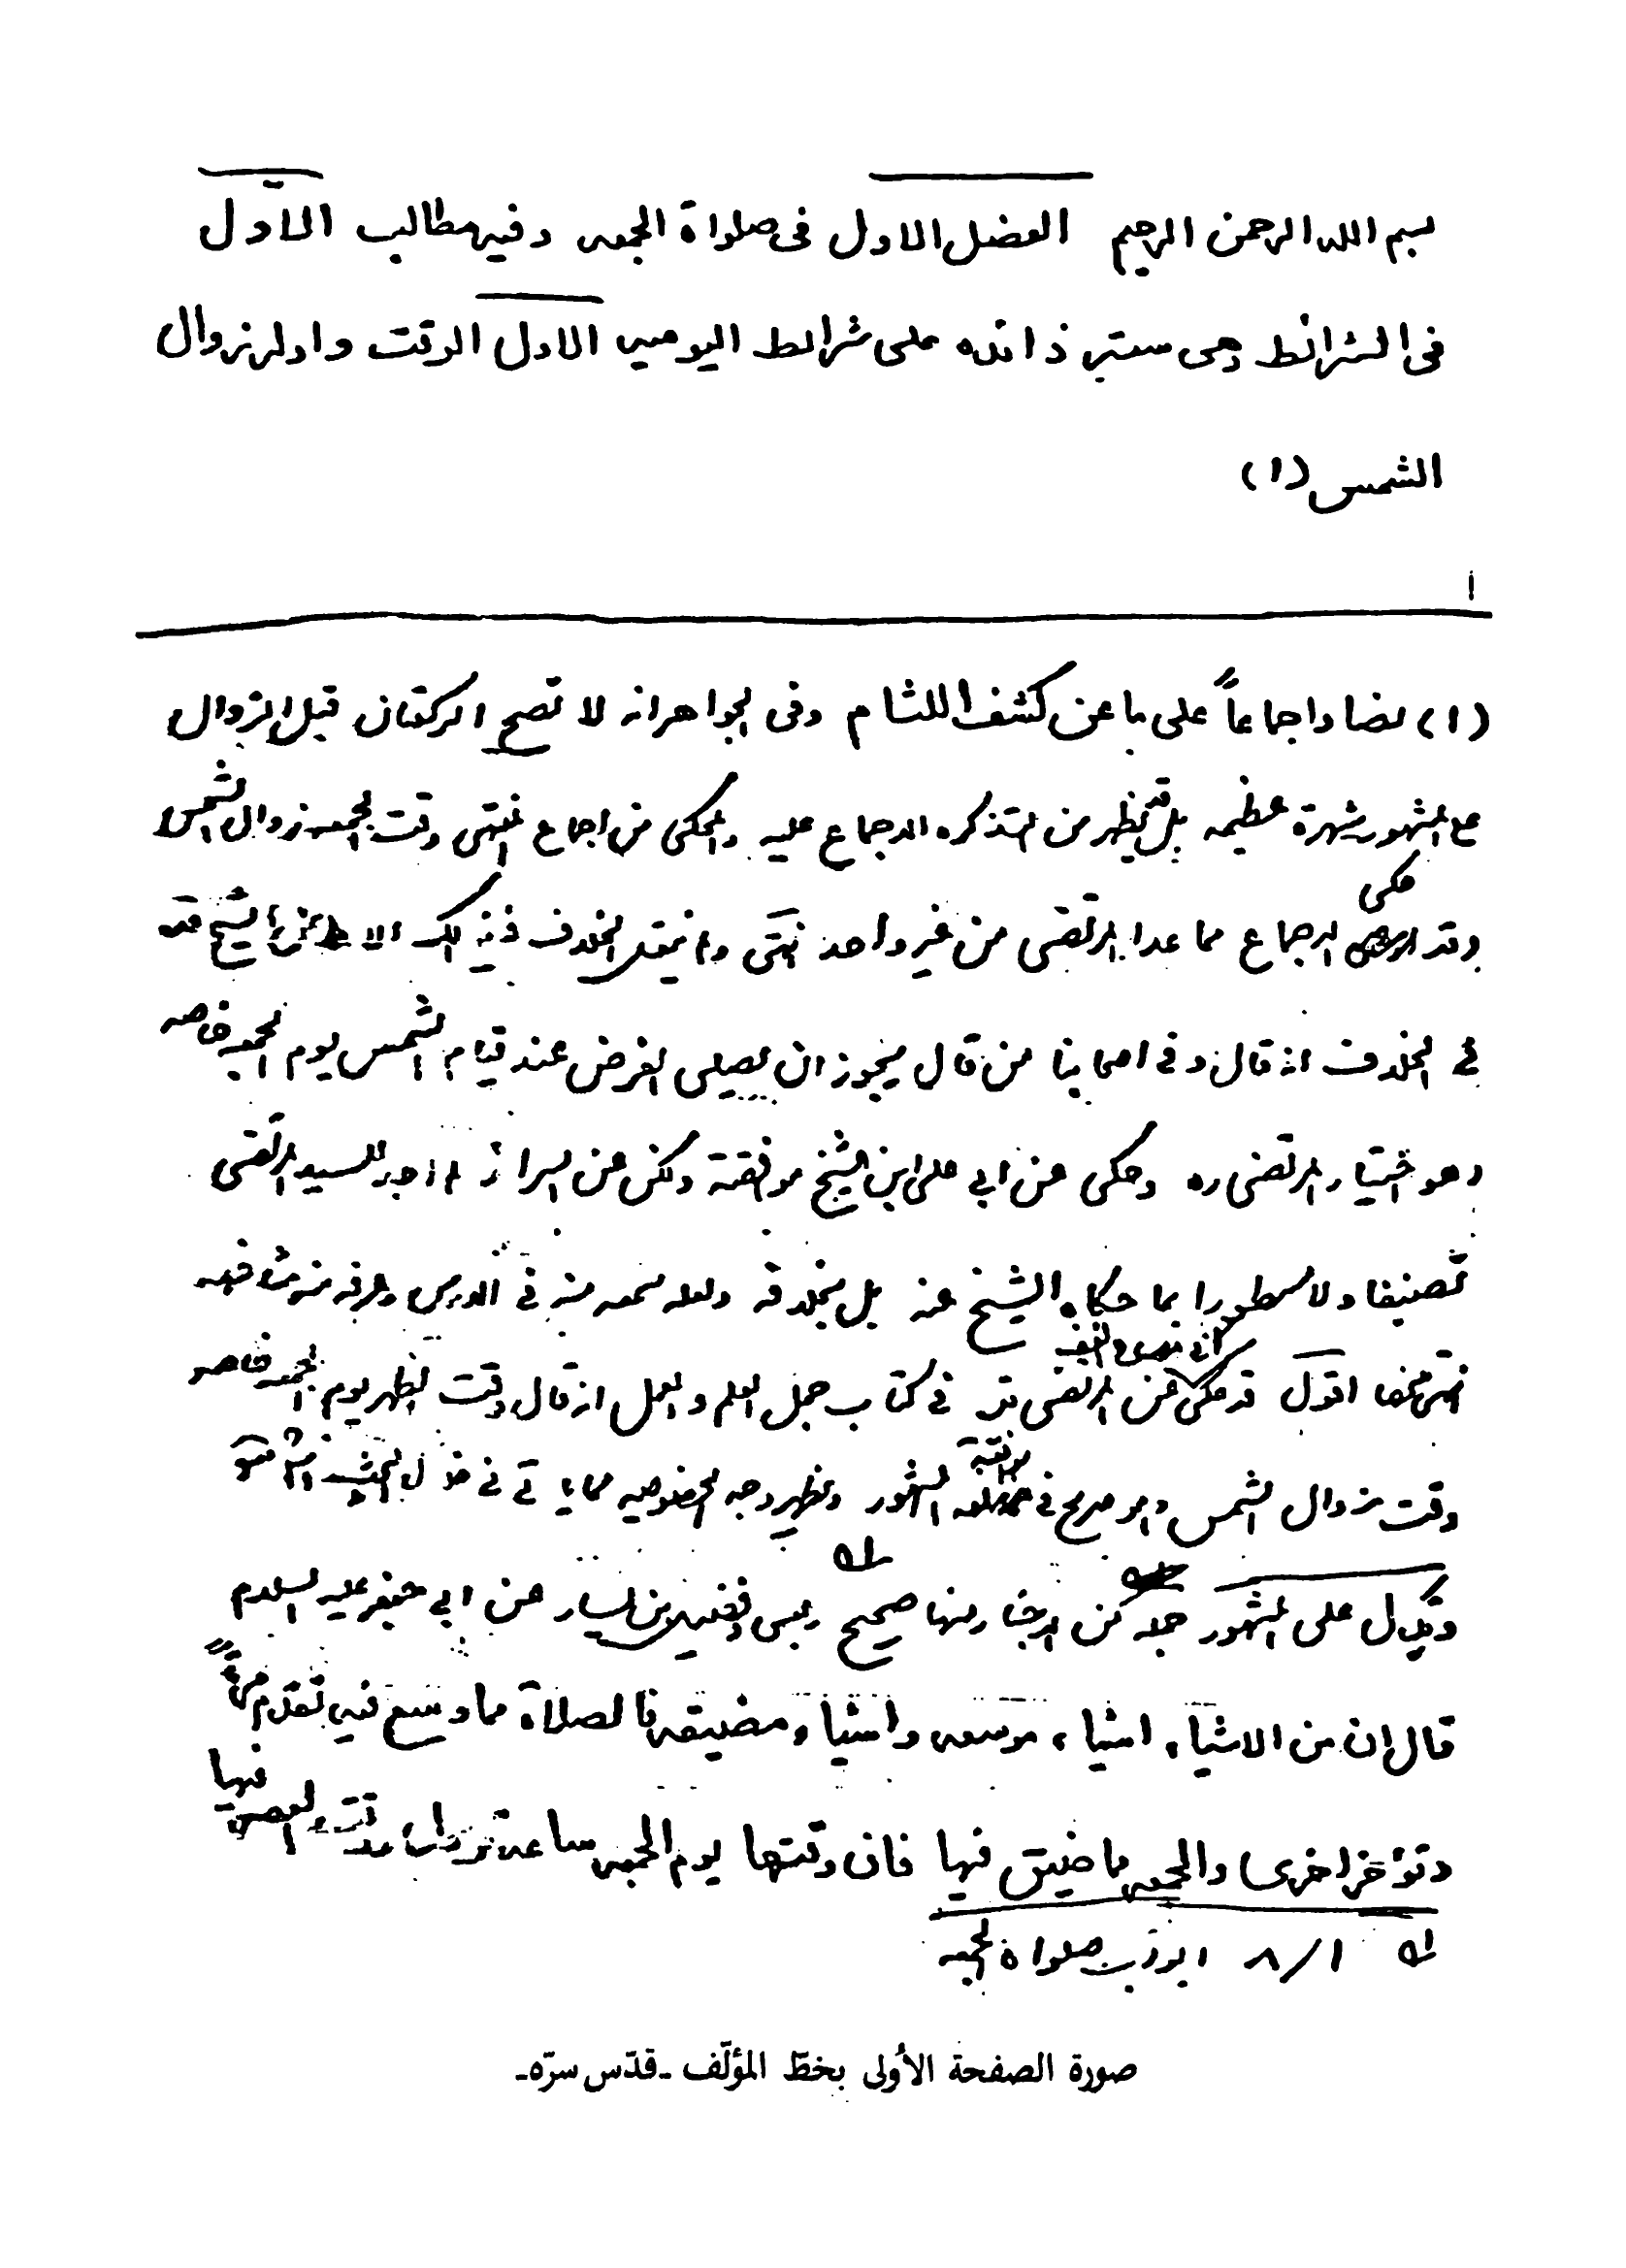 بسم الله الرحمن الرحيم الفصل الاول فى صلواة الجمعه وفيه مطالب الاوّل
فى الشرائط وهى ستة زائده على شرائط اليوميه الاول الوقت واوله زوال
الشمس (١)
(١) نصا واجماعاً على ما عن كشف اللثام وفى الجواهر انه لا تصح الركعتان قبل الزوال
مع المشهور شهرة عظيمه بل قد يظهر من التذكره الاجماع عليه والمحكى من اجماع المنتهى وقت الجمعه زوال الشمس
وقد حكى الاجماع مما عدا المرتضى من غير واحد انتهى ولم ينقل الخلاف فى ذلك الا عن الشيخ قده
فى الخلاف اذ قال وفى اصحابنا من قال يجوز ان يصلى الفرض عند قيام الشمس يوم الجمعه خاصه
وهو اختيار المرتضى ره وحكى عن ابي على ابن الشيخ موافقته ولكن عن السرائر لم اجد للسيد المرتضى
تصنيفا ولا مسطورا بما حكاه الشيخ عنه بل بخلافه ولعله سمعه منه فى الدرس وعرفه منه مشافهه
انتهى ملخصا اقول قد حكى عن المرتضى قده فى كتاب جمل العلم والعمل انه قال وقت الظهر يوم الجمعه خاصه
وقت زوال الشمس وهو صريح فى موافقة المشهور ويظهر وجه الخصوصيه مما ياتى فى خلال البحث
ويدل على المشهور جمله من الاخبار منها صحيح ربعى وفضيل بن يسار عن ابي جعفر عليه السلام
قال ان من الاشياء اشياء موسعه واشياء مضيقه فالصلاة مما وسع فيه تقدم مرّة
وتؤخر اخرى والجمعه مما ضيق فيها فان وقتها يوم الجمعه ساعة تزول ووقت العصر فيها
له ١/٨ ابواب صلواة الجمعه
صورة الصفحة الأولى بخطّ المؤلّف -قدّس سرّه-